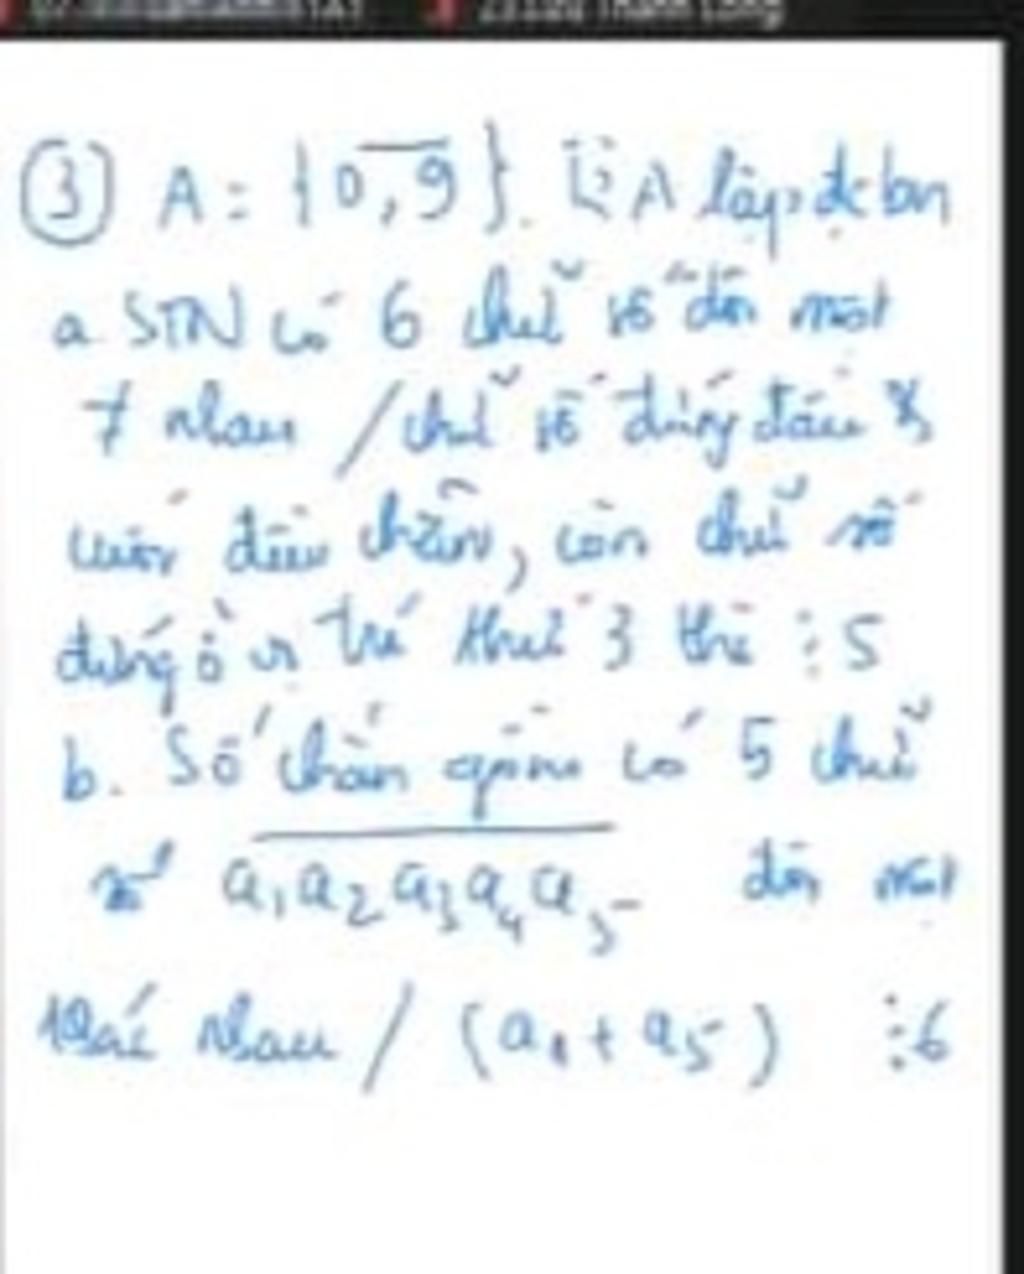 Thành Long
③ A = {0,9}. Từ A lập đc bn
a STN có 6 chữ số đôi một
≠ nhau / chữ số đứng đầu &
cuối đều chẵn, còn chữ số
đứng ở vị trí thứ 3 thì ⋮ 5
b. Số chẵn gồm có 5 chữ
số a₁a₂a₃a₄a₅ đôi một
khác nhau / (a₁ + a₅) ⋮ 6